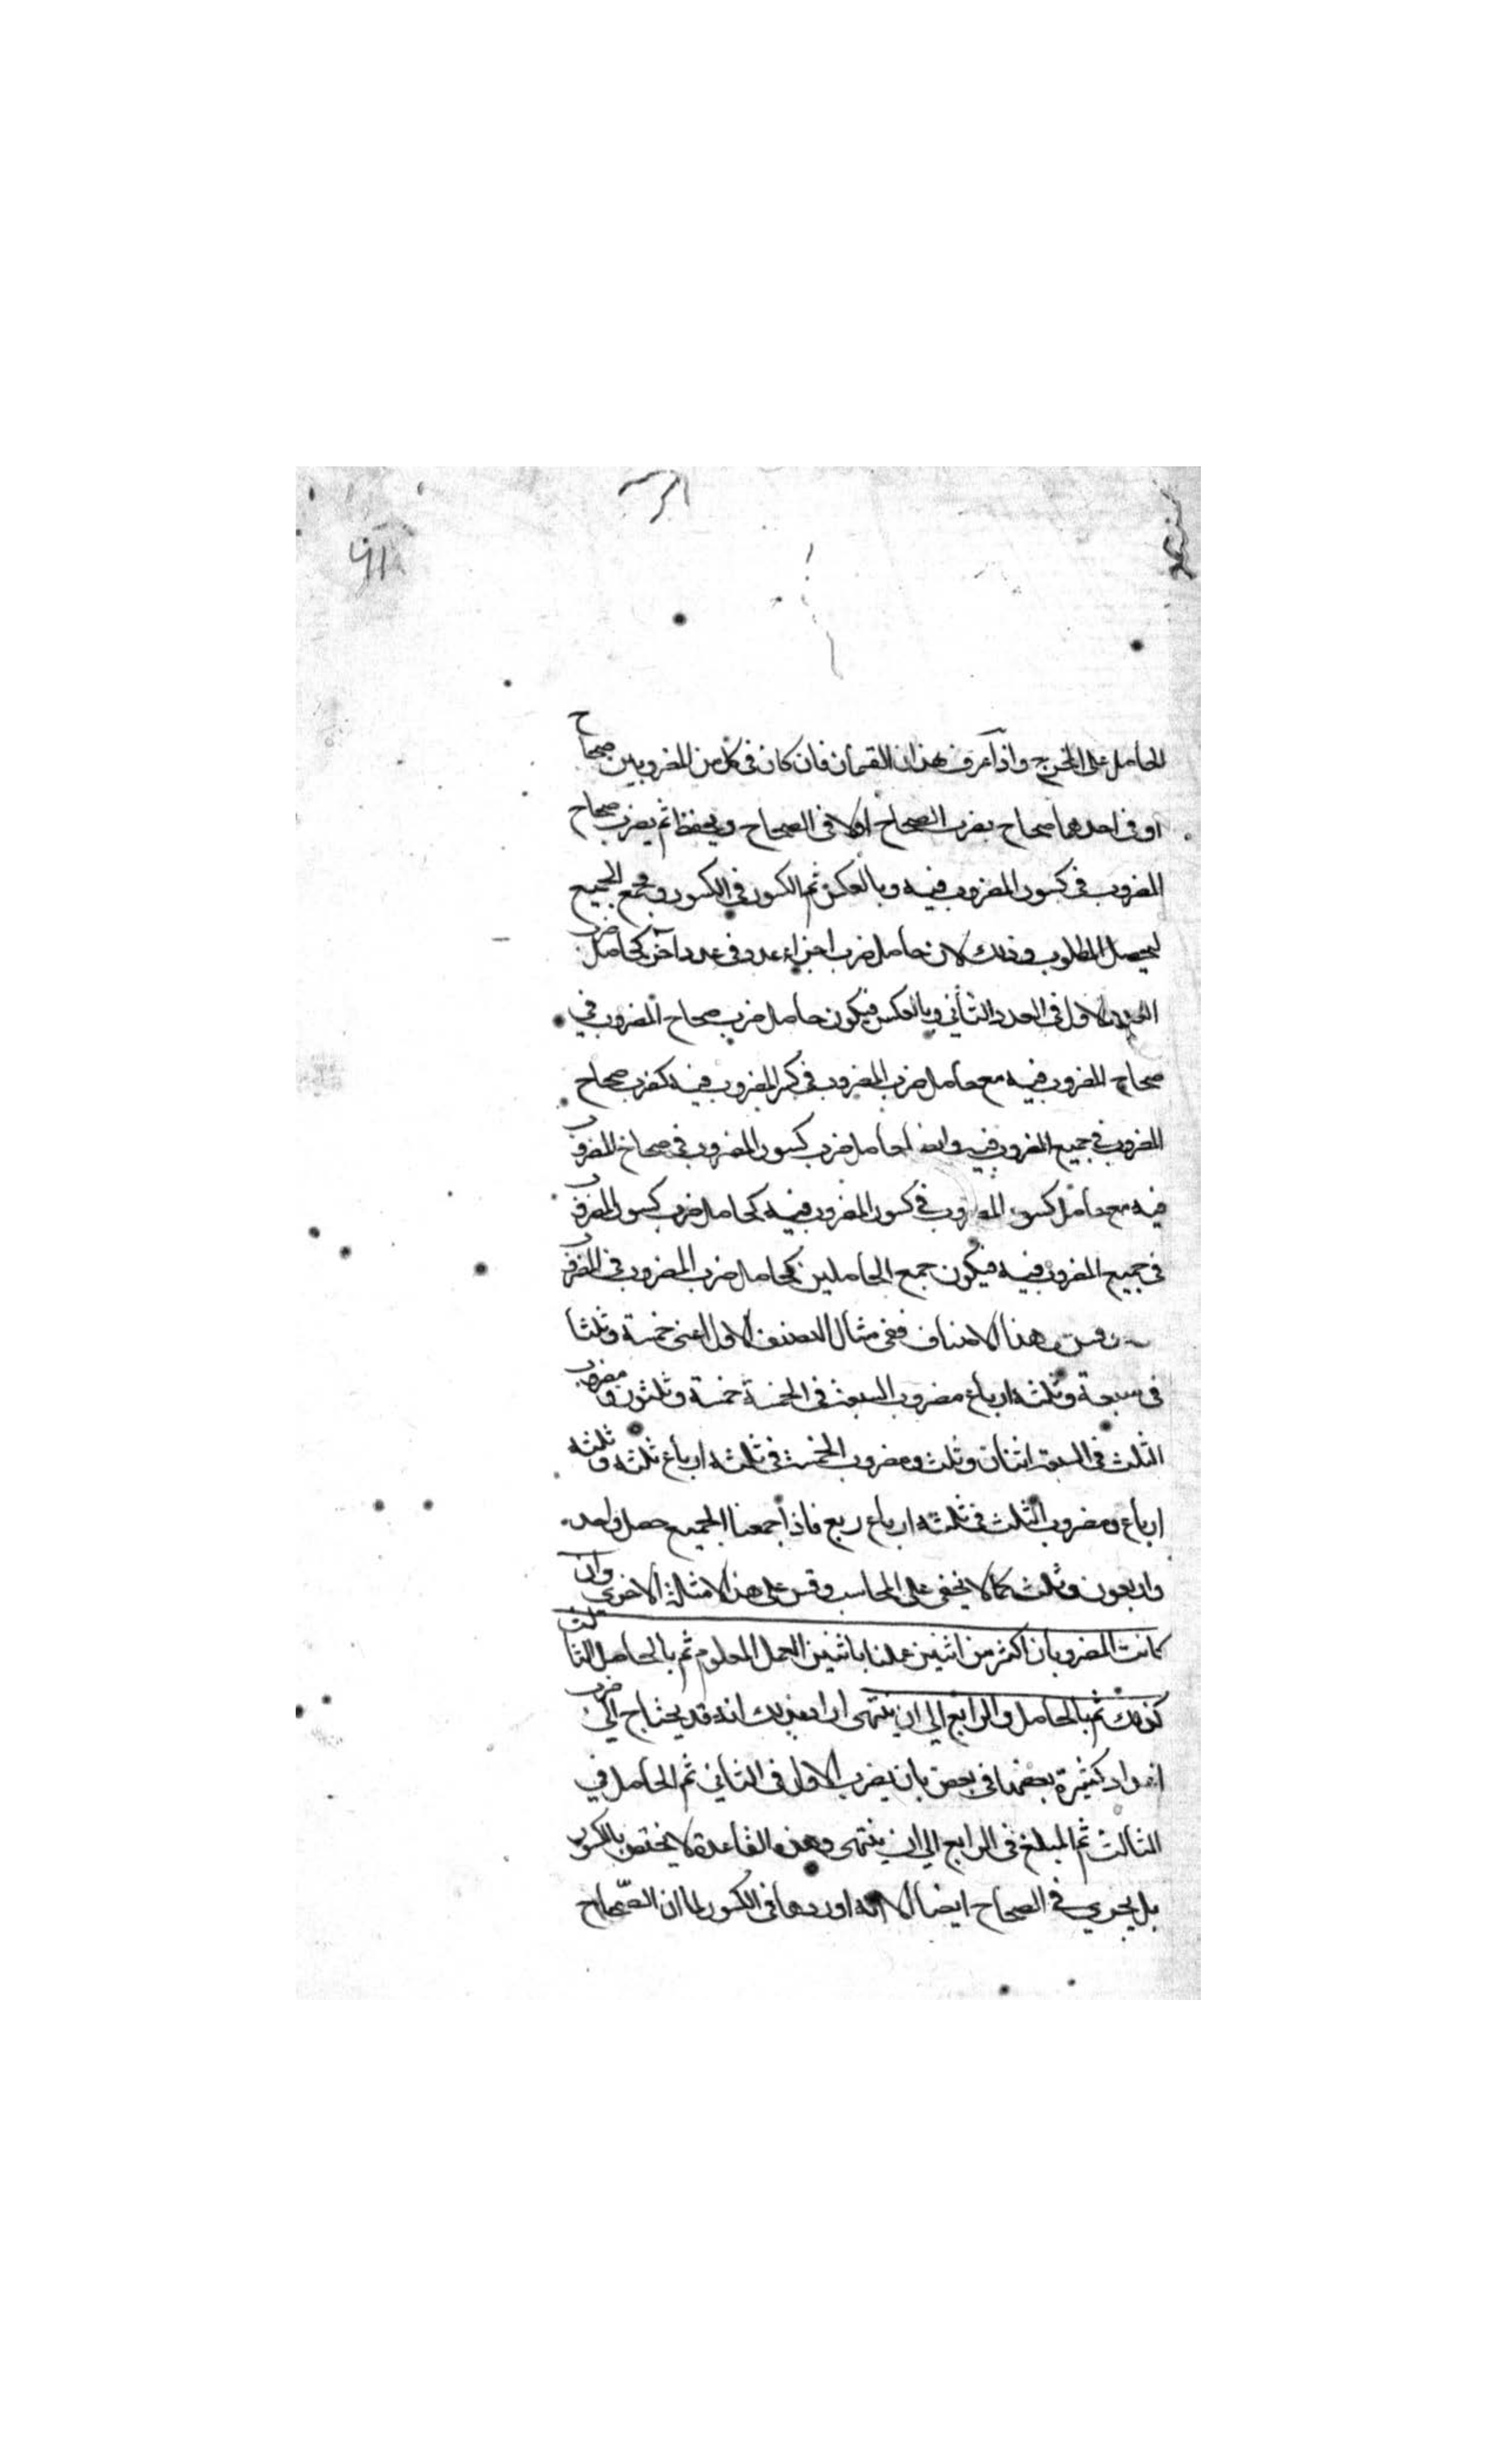 الحاصل على المخرج واذا عرف هذان القسمان فان كان فى كل من المضروبين صحاح
او فى احدهما صحاح يضرب الصحاح اولا فى الصحاح ويحفظ ثم يضرب صحاح
المضروب فى كسور المضروب فيه وبالعكس ثم الكسور فى الكسور ويجمع الجميع
ليحصل المطلوب وذلك لان حاصل ضرب اجزاء عدد فى عدد آخر كحاصل ضرب
العدد الاول فى العدد الثانى وبالعكس فيكون حاصل ضرب صحاح المضروب في
صحاح المضروب فيه مع حاصل ضرب المضروب فى كسر المضروب فيه كضرب صحاح
المضروب فى جميع المضروب فيه وايضا حاصل ضرب كسور المضروب فى صحاح المضروب
فيه مع حاصل كسور المضروب فى كسور المضروب فيه كحاصل ضرب كسور المضروب
فى جميع المضروب فيه فيكون جمع الحاصلين كحاصل ضرب المضروب فى المضروب
هذا الاصناف ففى مثال الصنف الاول اعنى خمسة وثلثا
فى سبعة وثلثه ارباع مضروب السبعة فى الخمسة خمسة وثلثون ومضروب
الثلث فى السبعة اثنان وثلث ومضروب الخمسة فى ثلثه ارباع ثلثه وثلثه
ارباع ومضروب الثلث فى ثلثه ارباع ربع فاذا جمعنا الجميع حصل واحد
واربعون وثلث كما لا يخفى على المحاسب وقس على هذا الامثلة الاخرى وان
كانت المضروبان اكثر من اثنين عملنا باثنين العمل المعلوم ثم بالحاصل الثالث
كذلك ثم بالحاصل والرابع الي ان ينتهى اراد بذلك انه قد يحتاج الى ضرب
اعداد كثيرة بعضها فى بعض بان يضرب الاول فى الثاني ثم الحاصل في
الثالث ثم المبلغ فى الرابع الي ان ينتهى وهذه القاعدة لا يختص بالكسور
بل يجري فى الصحاح ايضا الا انه اوردها فى الكسور لما ان الصّحاح